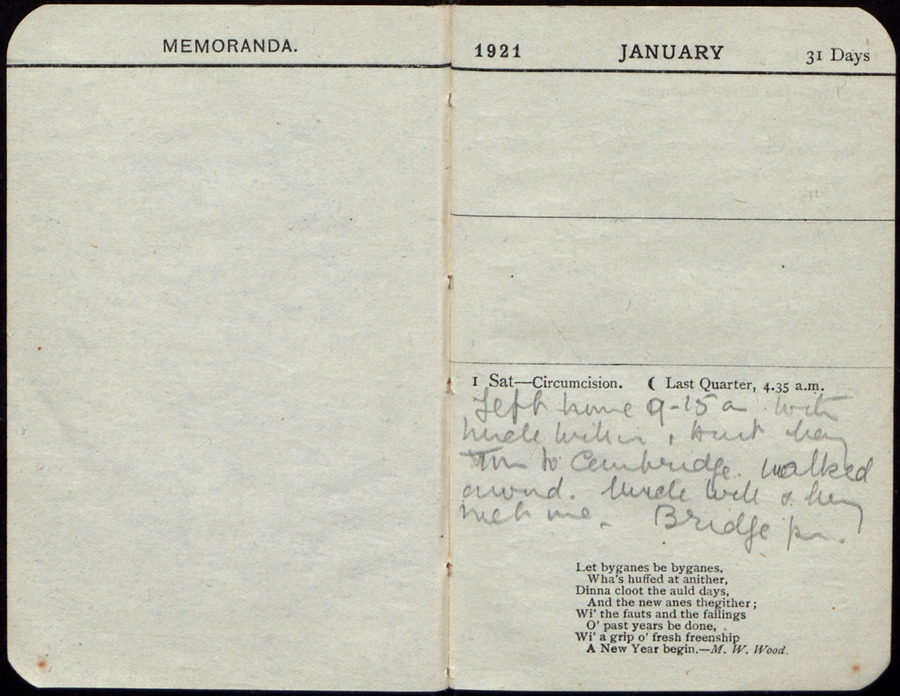 MEMORANDA.
1921 JANUARY 31 Days
1 Sat—Circumcision. ☾ Last Quarter, 4.35 a.m.
Left home 9-15 a with
Uncle
to Cambridge. Walked
around. Uncle Will &
met me. Bridge pm.
Let byganes be byganes,
Wha's huffed at anither,
Dinna cloot the auld days,
And the new anes thegither;
Wi' the fauts and the failings
O' past years be done,
Wi' a grip o' fresh freenship
A New Year begin.—M. W. Wood.